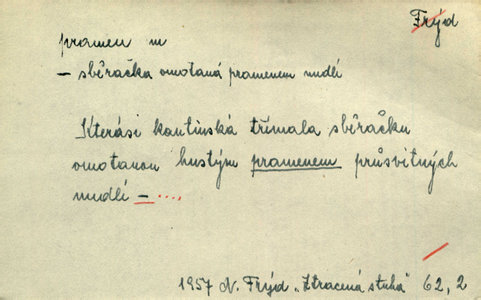 Frýd
pramen m
– sběračka omotaná pramenem nudlí
Kterási kantinská třímala sběračku
omotanou hustým pramenem průsvitných
nudlí – ....
1957 N. Frýd „Ztracená stuha“ 62, 2